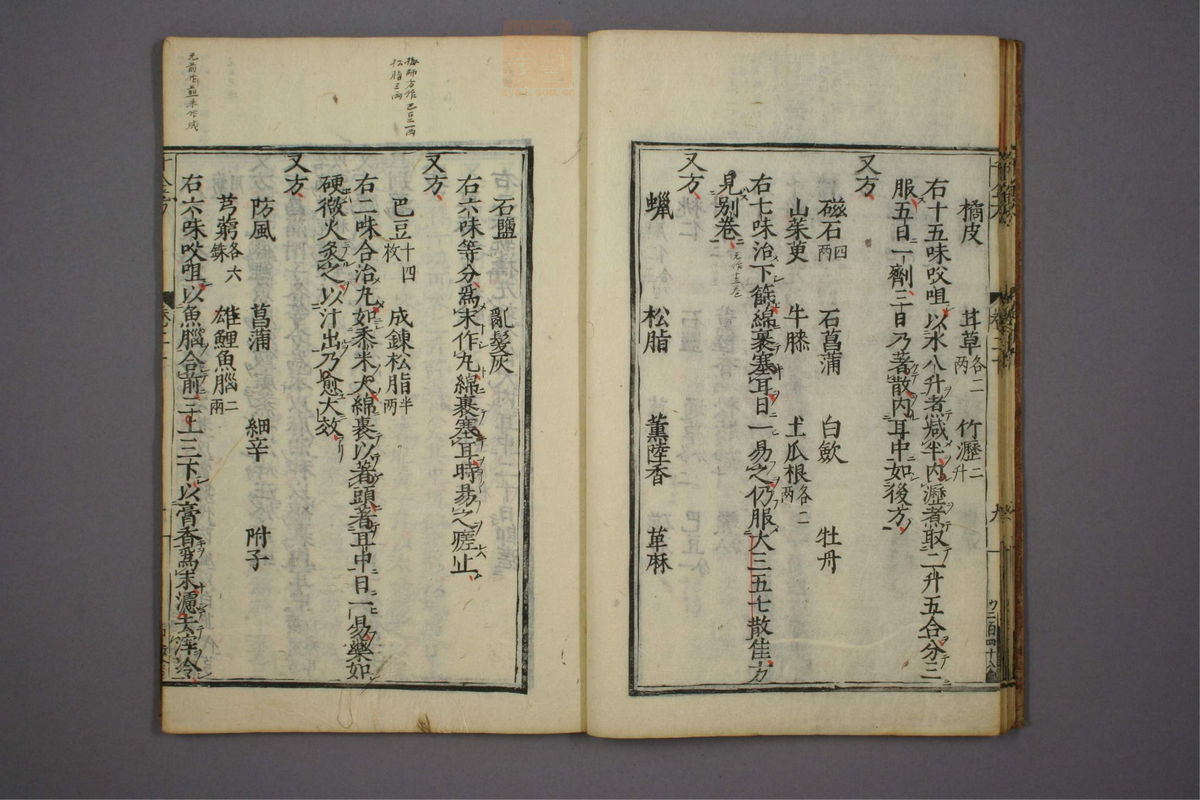 橘皮 茸草各二兩 竹瀝二升
右十五味㕮咀以水八升煮减半内瀝煮取二升五合分三
服五日一劑三日乃著散内耳中如後方
又方
磁石四兩 石菖蒲 白歛 牡丹
山茱萸 牛膝 土瓜根各二兩
右七味治下篩綿裹塞耳日一易之仍服大三五七散佳方
見別卷
又方
蠟 松脂 薰陸香 萆麻
石鹽 亂髮灰
右六味等分爲末作丸綿裹塞耳時易之瘥止
又方
巴豆十四枚 成鍊松脂半兩
右二味合治丸如黍米大綿裹以著頭著耳中日一易藥如
硬微火炙之以汁出乃愈大效
又方
防風 菖蒲 細辛 附子
芎藭各六銖 雄鯉魚腦二兩
右六味㕮咀以魚腦合煎三上三下以膏香爲末濾去滓冷